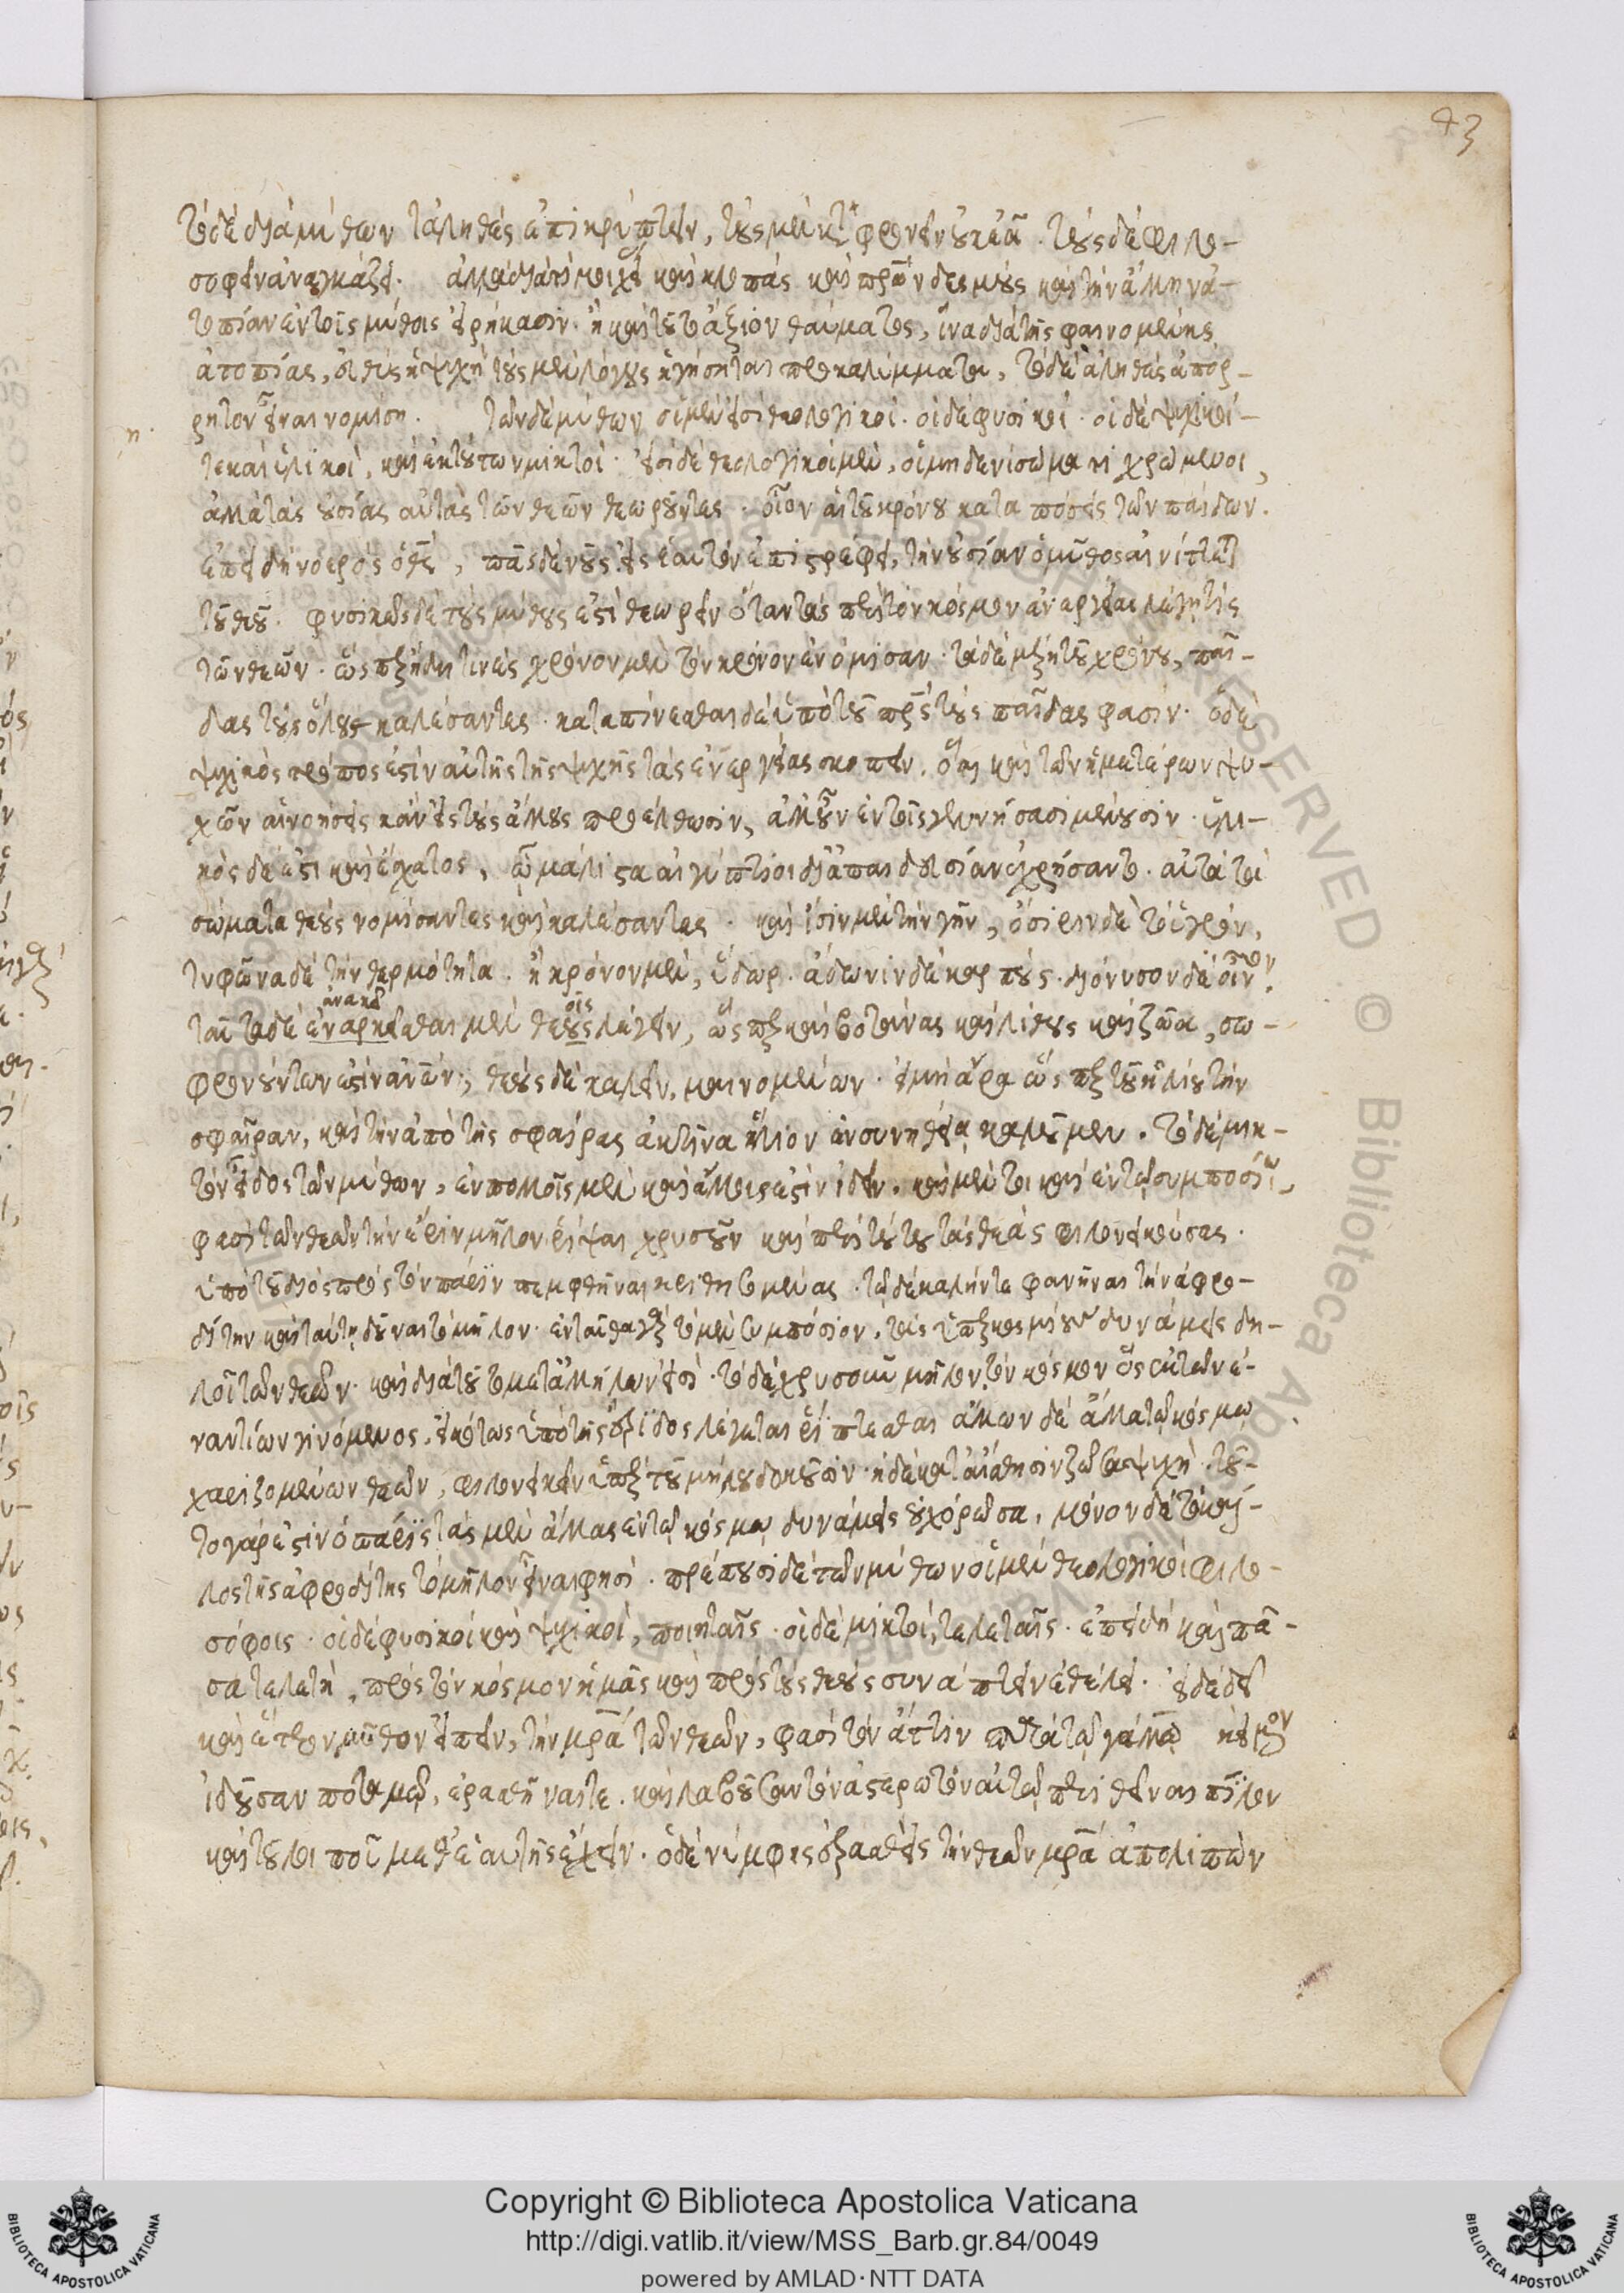 43
τὸ δὲ διὰ μύθων τἀληθὲς ἐπικρύπτειν, τοὺς μὲν καταφρονεῖν οὐκ ἐᾶ. τοὺς δὲ φιλο-
σοφεῖν ἀναγκάζει. ἀλλὰ διὰ τί μοιχείας καὶ κλοπὰς καὶ πατέρων δεσμοὺς καὶ τὴν ἄλλην ἀ-
τοπίαν ἐν τοῖς μύθοις εἰρήκασιν. ἢ καὶ τοῦτο ἄξιον θαύματος, ἵνα διὰ τῆς φαινομένης
ἀτοπίας, εὐθὺς ἡ ψυχὴ τοὺς μὲν λόγους ἡγήσηται προκαλύμματα, τὸ δὲ ἀληθὲς ἀπόρ-
ρητον εἶναι νομίση. τῶν δὲ μύθων οἱ μέν εἰσι θεολογικοί. οἱ δὲ φυσικοί. οἱ δὲ ψυχικοί-
τε καὶ ὑλικοὶ, καὶ ἐκ τούτων μικτοί. εἰσὶ δὲ θεολογικοὶ μὲν, οἱ μηδενὶ σώματι χρώμενοι,
ἀλλὰ τὰς οὐσίας αὐτὰς τῶν θεῶν θεωροῦντες. οἷον αἱ τοῦ κρόνου καταπόσεις τῶν παίδων.
ἐπειδὴ νοερὸς ὁ θεὸς, πᾶς δὲ νοῦς εἰς ἑαυτὸν ἐπιστρέφει, τὴν οὐσίαν ὁ μῦθος αἰνίττεται
τοῦ θεοῦ. φυσικῶς δὲ τοὺς μύθους ἐστὶ θεωρεῖν ὅταν τὰς περὶ τὸν κόσμον ἐνεργείας λέγη τις
τῶν θεῶν. ὥσπερ ἤδη τινὲς χρόνον μὲν τὸν κρόνον ἐνόμισαν. τὰ δὲ μέρη τοῦ χρόνου, παῖ-
δας τοῦ ὅλου καλέσαντες. καταπίνεσθαι δὲ ὑπὸ τοῦ πατρὸς τοὺς παῖδας φασίν. ὁ δὲ
ψυχικὸς τρόπος ἐστὶν αὐτῆς τῆς ψυχῆς τὰς ἐνεργείας σκοπεῖν. ὅτι καὶ τῶν ἡμετέρων ψυ-
χῶν αἱ νοήσεις κἂν εἰς τοὺς ἄλλους προέλθωσιν, ἀλλ' οὖν ἐν τοῖς γεννήσασι μένουσιν. ὑλι-
κὸς δέ ἐστι καὶ ἔσχατος, ᾧ μάλιστα αἰγύπτιοι δι' ἀπαιδευσίαν ἐχρήσαντο. αὐτὰ τὰ
σώματα θεοὺς νομίσαντες καὶ καλέσαντες. καὶ ἶσιν μὲν τὴν γῆν, ὄσιριν δὲ τὸ ὑγρόν,
τυφῶνα δὲ τὴν θερμότητα. ἢ κρόνον μὲν, ὕδωρ. ἄδωνιν δὲ καρπούς. διόνυσον δὲ οἶνον.
ταῦτα δὲ ἐναρκεῖσθαι μὲν θεοὺς λέγειν, ὥσπερ καὶ βοτάνας καὶ λίθους καὶ ζῶα, σω-
φρονούντων ἐστὶν ἀνθρώπων, θεοὺς δὲ καλεῖν, μαινομένων. εἰ μὴ ἄρα ὥσπερ τοῦ ἡλίου τὴν
σφαῖραν, καὶ τὴν ἀπὸ τῆς σφαίρας ἀκτῖνα ἥλιον ἐν συνηθεία καλοῦμεν. τὸ δὲ μικ-
τὸν εἶδος τῶν μύθων, ἐν πολλοῖς μὲν καὶ ἄλλοις ἐστὶν ἰδεῖν. καὶ μέντοι καὶ ἐν τῷ συμποσίῳ,
φασὶ τῶν θεῶν τὴν ἔριν μῆλον ῥίψαι χρυσοῦν καὶ περὶ τούτου τὰς θεὰς φιλονεικούσας.
ὑπὸ τοῦ διὸς πρὸς τὸν πάριν πεμφθῆναι κριθησομένας. τῷ δὲ καλήν τε φανῆναι τὴν ἀφρο-
δίτην καὶ ταύτη δοῦναι τὸ μῆλον. ἐνταῦθα γὰρ τὸ μὲν συμπόσιον, τὰς ὑπερκοσμίους δυνάμεις δη-
λοῖ τῶν θεῶν. καὶ διὰ τοῦτο μετ' ἀλλήλων εἰσί. τὸ δὲ χρυσοῦν μῆλον τὸν κόσμον ὃς ἐκ τῶν ἐ-
ναντίων γινόμενος, εἰκότως ὑπὸ τῆς ἔριδος λέγεται ῥίπτεσθαι ἄλλων δὲ ἄλλα τῷ κόσμῳ
χαριζομένων θεῶν, φιλονεικεῖν ὑπὲρ τοῦ μήλου δοκοῦσιν. ἡ δὲ κατ' αἴσθησιν ζῶσα ψυχὴ τοῦ-
το γάρ ἐστιν ὁ πάρις τὰς μὲν ἄλλας ἐν τῷ κόσμῳ δυνάμεις οὐχ ὁρῶσα, μόνον δὲ τὸ κάλ-
λος τῆς ἀφροδίτης τὸ μῆλον εἶναι φησί. πρέπουσι δὲ τῶν μύθων οἱ μὲν θεολογικοὶ φιλο-
σόφοις. οἱ δὲ φυσικοὶ καὶ ψυχικοὶ, ποιηταῖς. οἱ δὲ μικτοὶ, τελεταῖς. ἐπειδὴ καὶ πᾶ-
σα τελετὴ, πρὸς τὸν κόσμον ἡμᾶς καὶ πρὸς τοὺς θεοὺς συνάπτειν ἐθέλει. εἰ δὲ δεῖ
καὶ ἕτερον μῦθον εἰπεῖν, τὴν μητέρα τῶν θεῶν, φασὶ τὸν ἄττιν
ἰδοῦσαν ποταμῷ, ἐρασθῆναί τε. καὶ λαβοῦσαν τὸν ἀστερωτὸν αὐτῷ περιθεῖναι πῖλον
καὶ τοῦ λοιποῦ μεθ' ἑαυτῆς ἔχειν. ὁ δὲ νύμφης ἐρασθεὶς τὴν θεῶν μητέρα ἀπολιπὼν
Copyright © Biblioteca Apostolica Vaticana
http://digi.vatlib.it/view/MSS_Barb.gr.84/0049
powered by AMLAD · NTT DATA